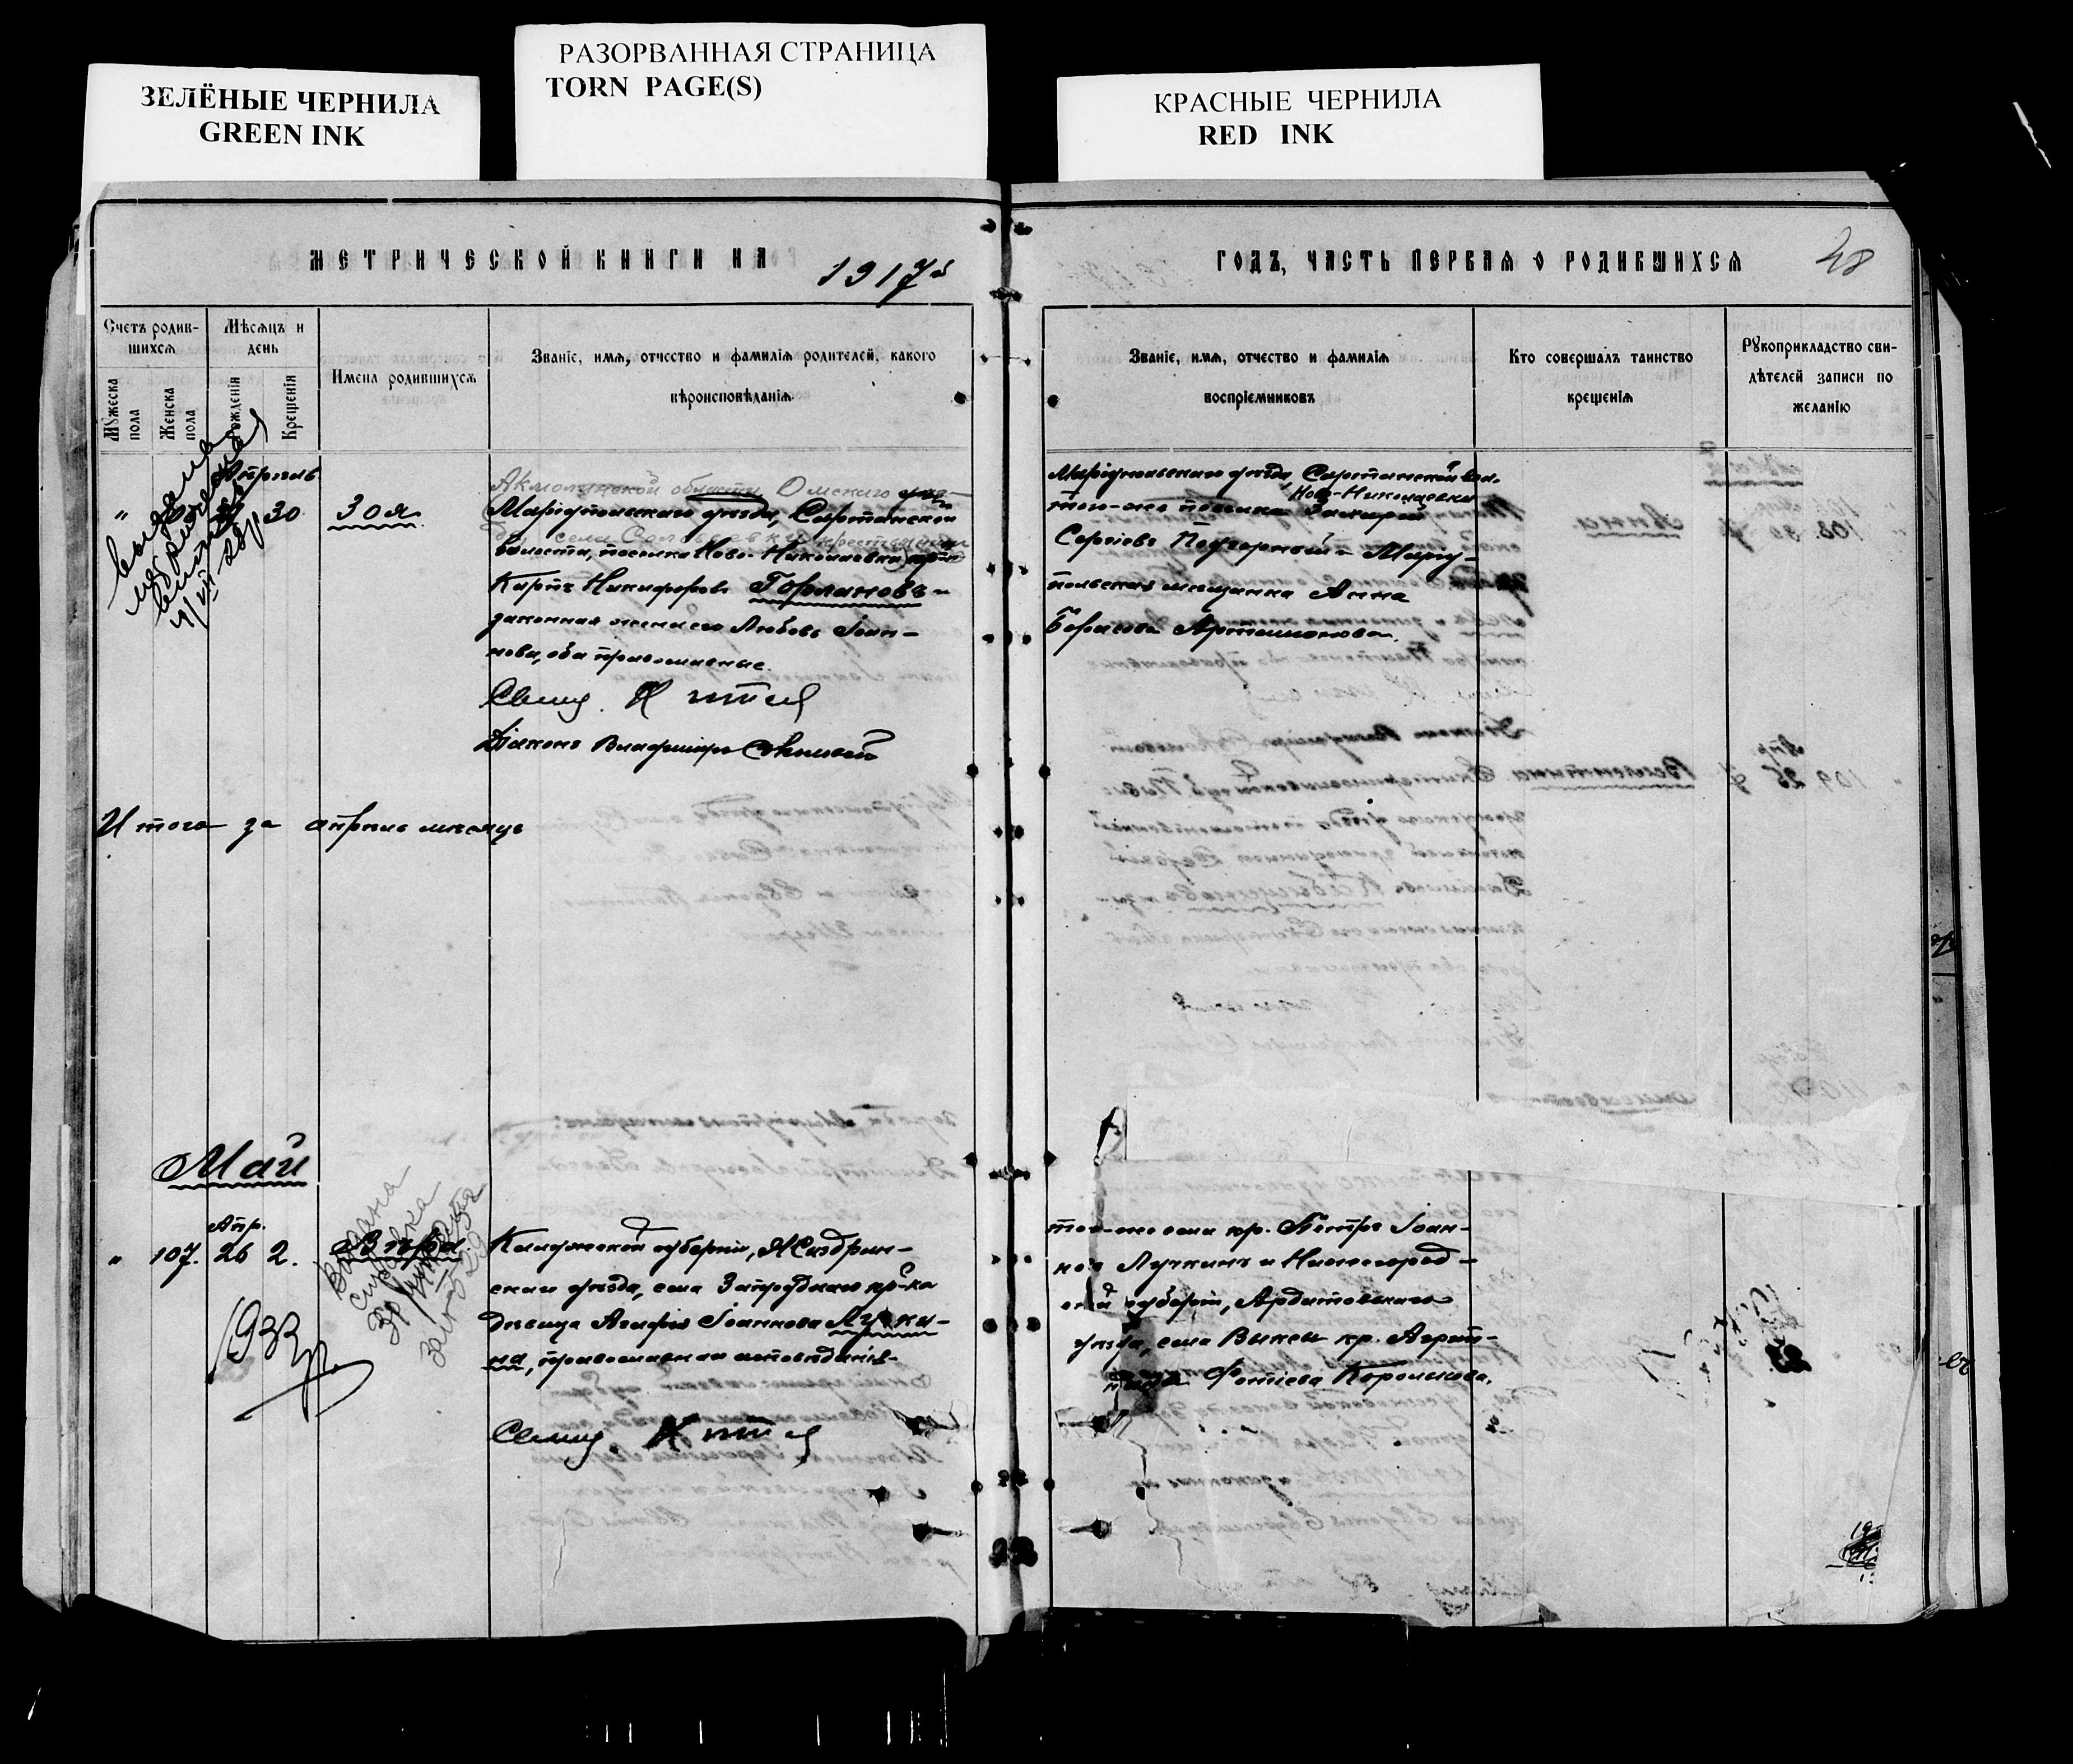 ЗЕЛЁНЫЕ ЧЕРНИЛА
GREEN INK
РАЗОРВАННАЯ СТРАНИЦА
TORN PAGE(S)
КРАСНЫЕ ЧЕРНИЛА
RED INK
МЕТРИЧЕСКОЙ КНИГИ НА 1917
ГОДЪ, ЧАСТЬ ПЕРВАЯ О РОДИВШИХСЯ
28
Счетъ родив-
шихся
Мужеска пола
Женска пола
Мѣсяцъ и
день
Рожденія
Крещенія
Имена родившихся
Званіе, имя, отчество и фамилія родителей, какого
вѣроисповѣданія
Званіе, имя, отчество и фамилія
воспріемниковъ
Кто совершалъ таинство
крещенія
Рукоприкладство сви-
дѣтелей записи по
желанію
Апрѣль
" 30 Зоя
Акмолинской области Омскаго
Маріупольскаго уѣзда, Сартанской
волости, поселка Ново-Николаевки
Карпъ Никифоровъ Горлановъ и
законная жена его Любовь Іоан-
нова, оба православные.
Діаконъ Владиміръ
Маріупольскаго уѣзда, Сартанской вол.
Ново-Николаевки
того-же поселка Захарій
Сергіевъ Подгорный и Маріу-
польская мещанка Анна
Борисова Арташонова.
выдана
Итого за апрѣль мѣсяцъ
Май
Апр.
" 107. 26 2.
выдана
справка
Калужской губерніи, Жиздрин-
скаго уѣзда, села Запрудного кр-ка
дѣвица Агафія Іоаннова Лучки-
на, православнаго исповѣданія.
того-же села кр. Петръ Іоан-
новъ Лучкинъ и Нижегород-
ской губерніи, Ардатовскаго
уѣзда, села Выксы кр. Агрип-
пина Фотіева Королькова.
1933